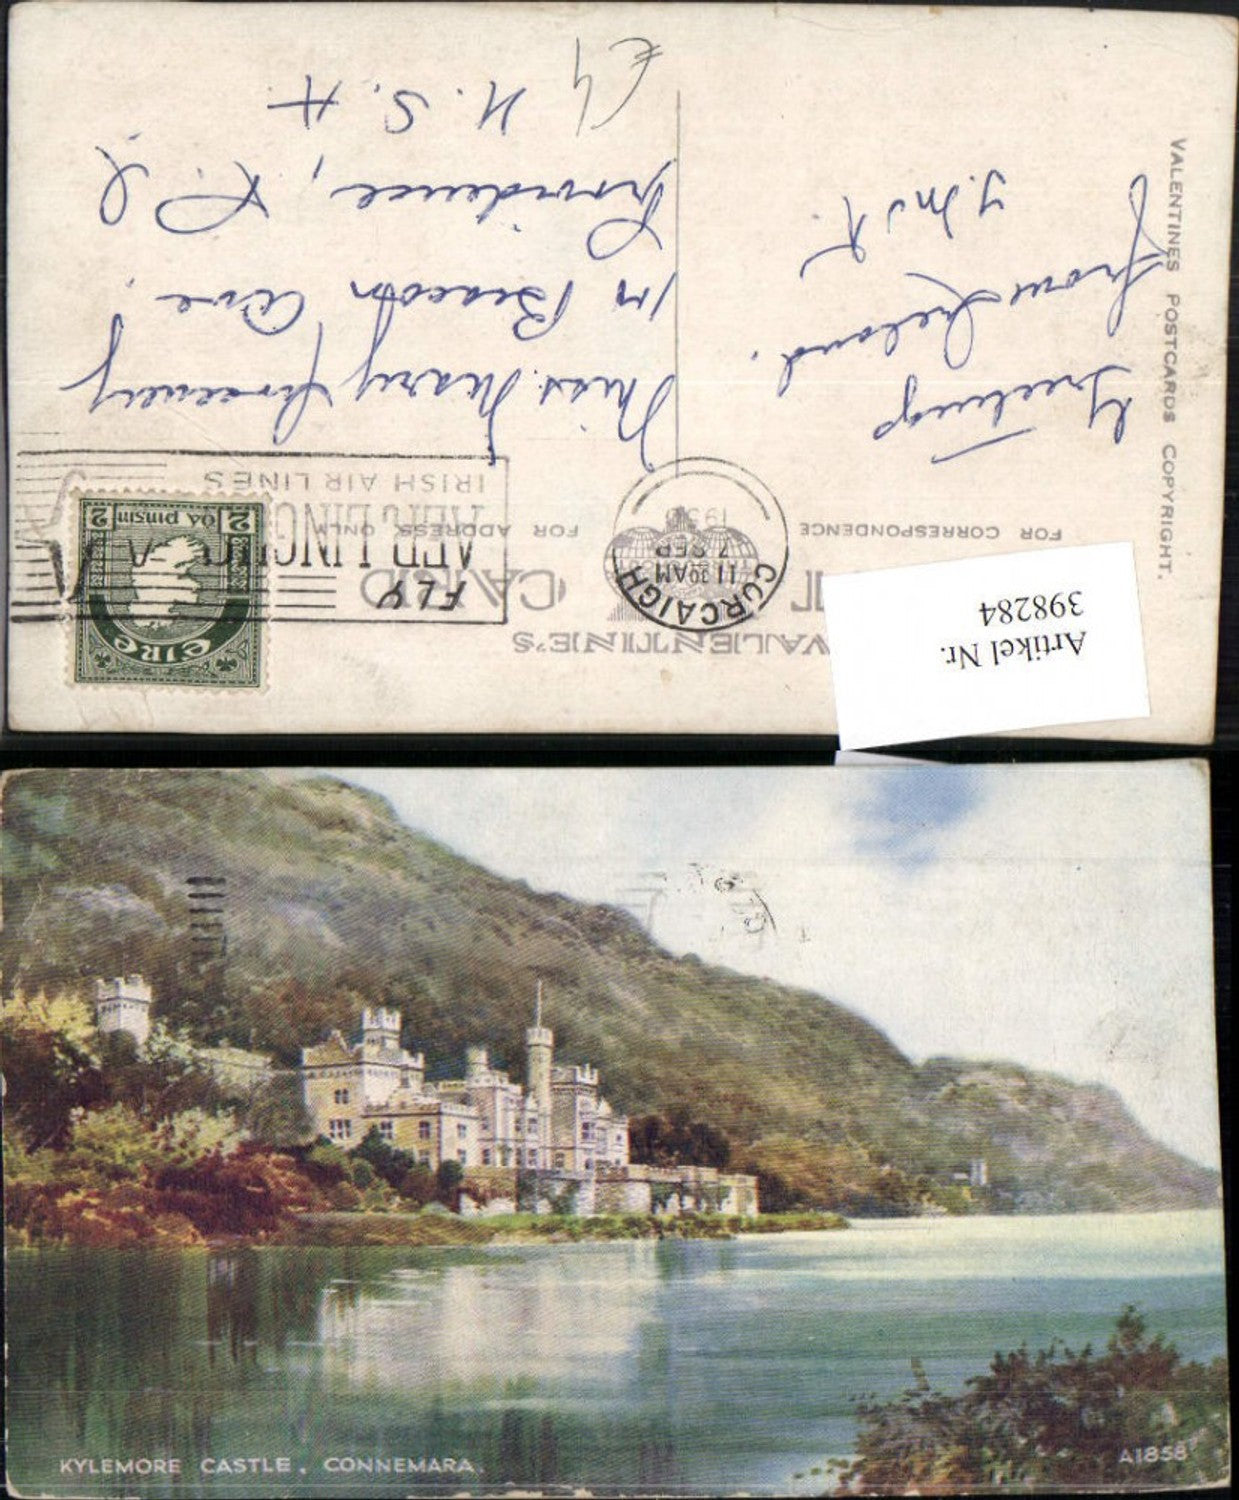 VALENTINE'S
CARD
FOR CORRESPONDENCE
FOR ADDRESS ONLY
VALENTINES POSTCARDS COPYRIGHT.
Artikel Nr.
398284
Greetings
from Ireland.
CORCAIGH
11 30AM
7 SEP
FLY
AER LINGUS
IRISH AIR LINES
éire
2 DÁ pinsin 2
Miss. Mary
Beacon Ave.
Providence, R. I
U. S. A
€4
KYLEMORE CASTLE, CONNEMARA.
A1858